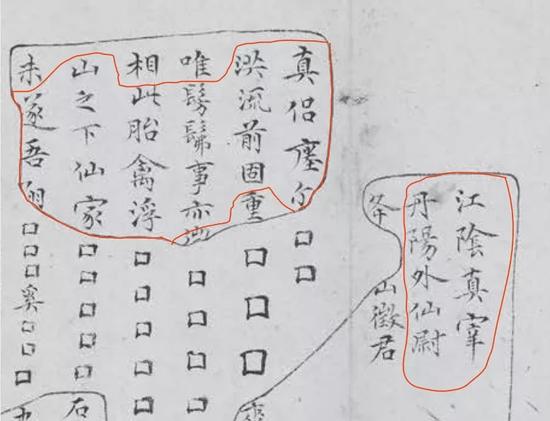 江陰真宰
丹陽外仙尉
夅山徵君
真侶瘞尔□□
洪流前固重□□□
唯髣髴事亦□□□□
相此胎禽浮□□□□□
山之下仙家□□□□石
未遂吾翔□□□奚□□□